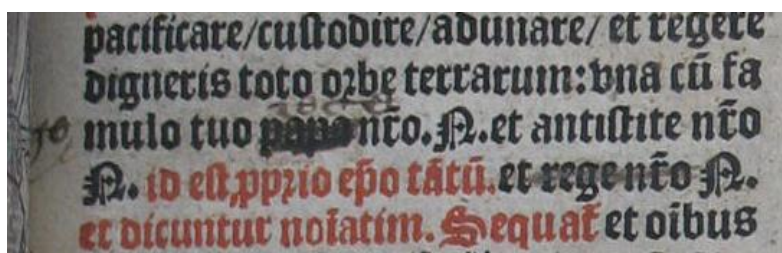 pacificare/cuſtodire/adunare/ et regere
digneris toto orbe terrarum: vna cū fa
mulo tuo papa nr̄o. N. et antiſtite nr̄o
N. id eſt, ꝓprio ep̄o tātū. et rege nr̄o N.
et dicuntur noīatim. Sequat᷑ et oībus